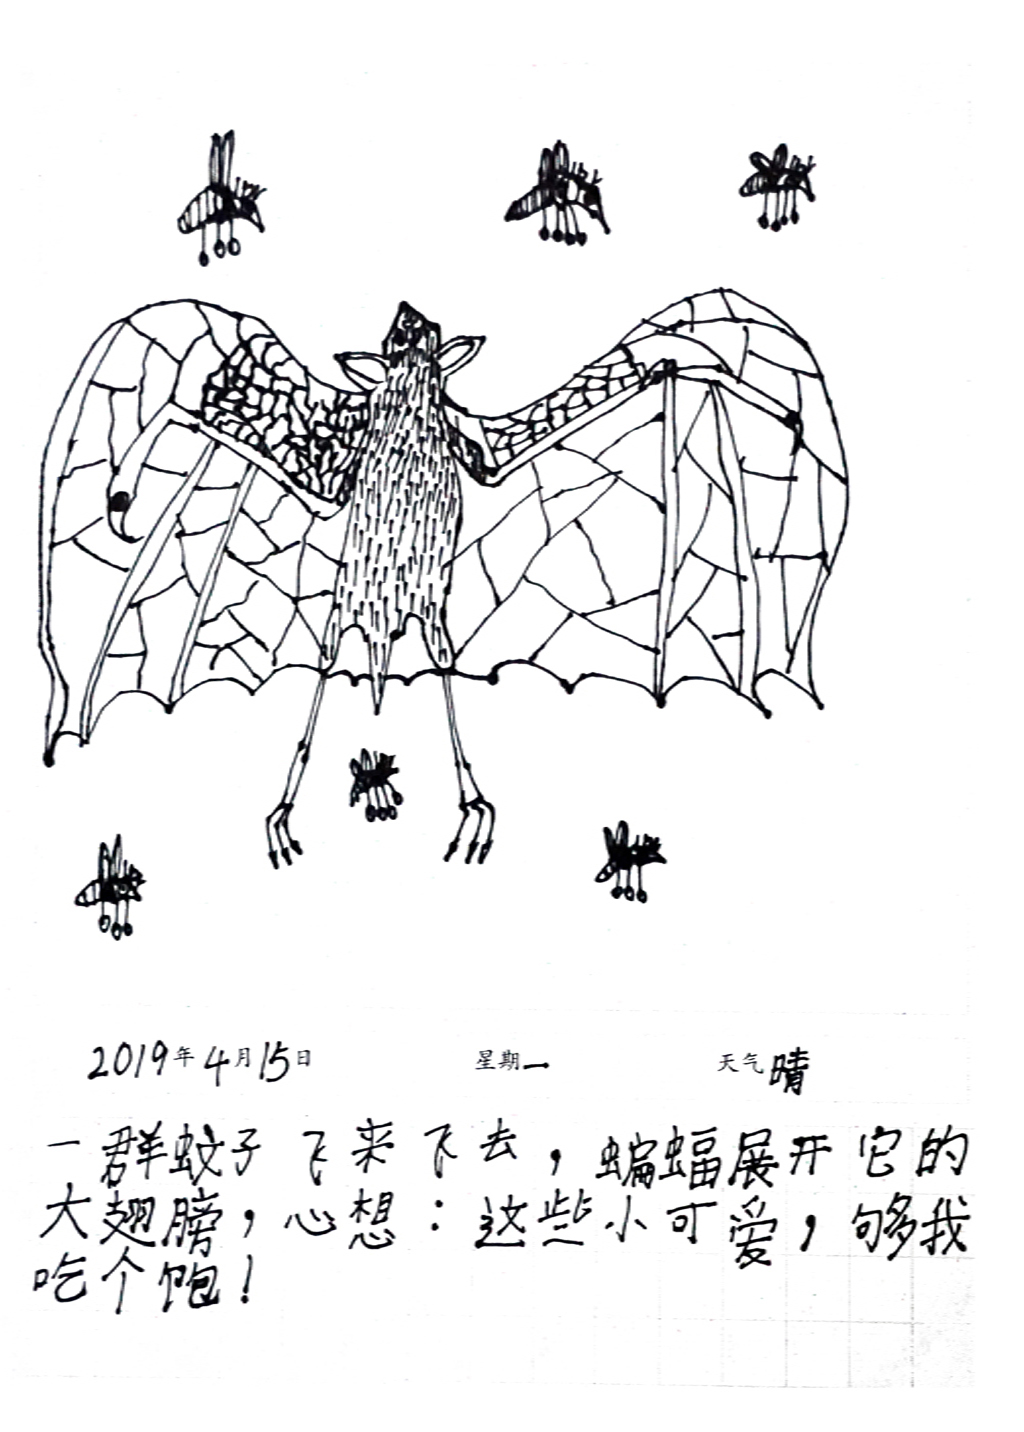 2019年4月15日 星期一 天气晴
一群蚊子飞来飞去，蝙蝠展开它的
大翅膀，心想：这些小可爱，够我
吃个饱！